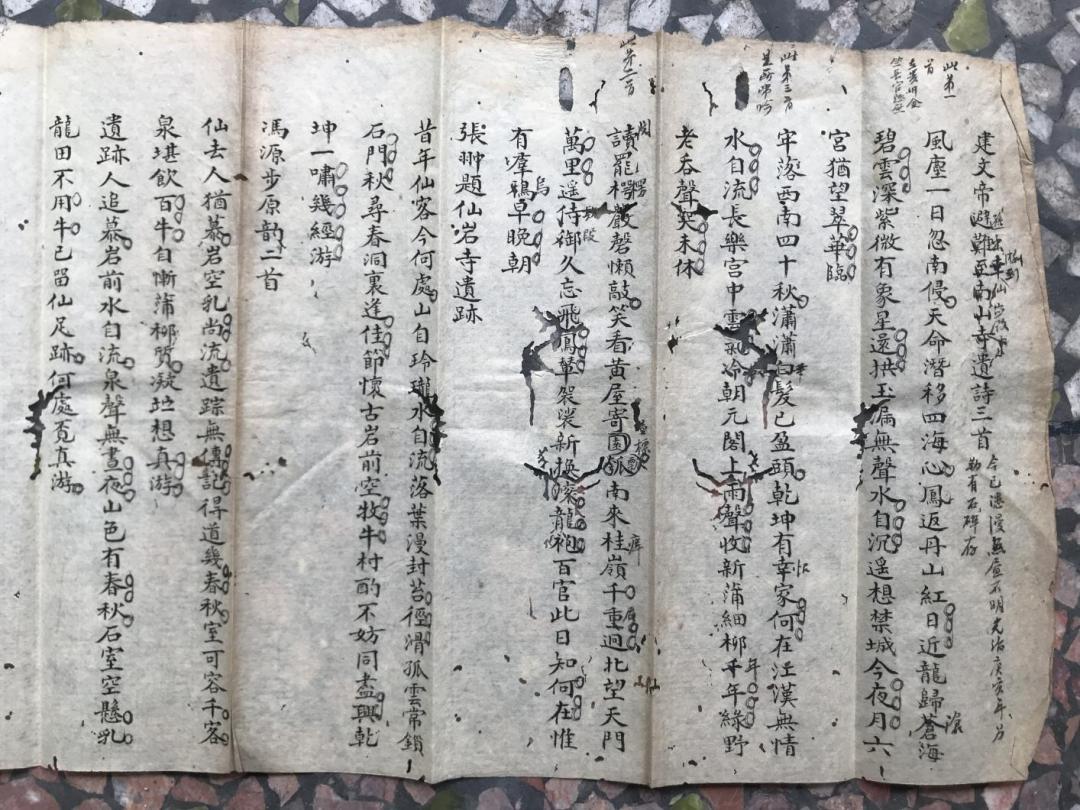 建文帝避難至南山寺遺詩三首
今已漫漫無應不明光治庚寅年另勒有石碑存
此第一首
風塵一日忽南侵天命潛移四海心鳳返丹山紅日近龍歸蒼海
碧雲深紫微有象星還拱玉漏無聲水自沉遥想禁城今夜月六
宮猶望翠華臨
此第三首
牢落西南四十秋瀟瀟白髮已盈頭乾坤有幸家何在江漢無情
水自流長樂宮中雲氣冷朝元閣上雨聲收新蒲細柳千年綠野
老吞聲哭未休
此第二首
讀罷楞嚴磬懶敲笑看黃屋寄團瓢南來桂嶺千重迥北望天門
萬里遥待御久忘飛鳳輦袈裟新換滾龍袍百官此日知何在惟
有羣鴉卓晚朝
張翀題仙岩寺遺跡
昔年仙客今何處山自玲瓏水自流落葉漫封苔徑滑孤雲常鎖
石門秋尋春洞裏逢佳節懷古岩前空牧牛村酌不妨同盡興乾
坤一嘯幾經游
馮源步原韵二首
仙去人猶慕岩空乳尚流遺踪無傳記得道幾春秋室可容千客
泉堪飲百牛自慚蒲柳質凝竚想真游
遺跡人追慕岩前水自流泉聲無晝夜山色有春秋石室空懸乳
龍田不用牛已留仙足跡何處覔真游